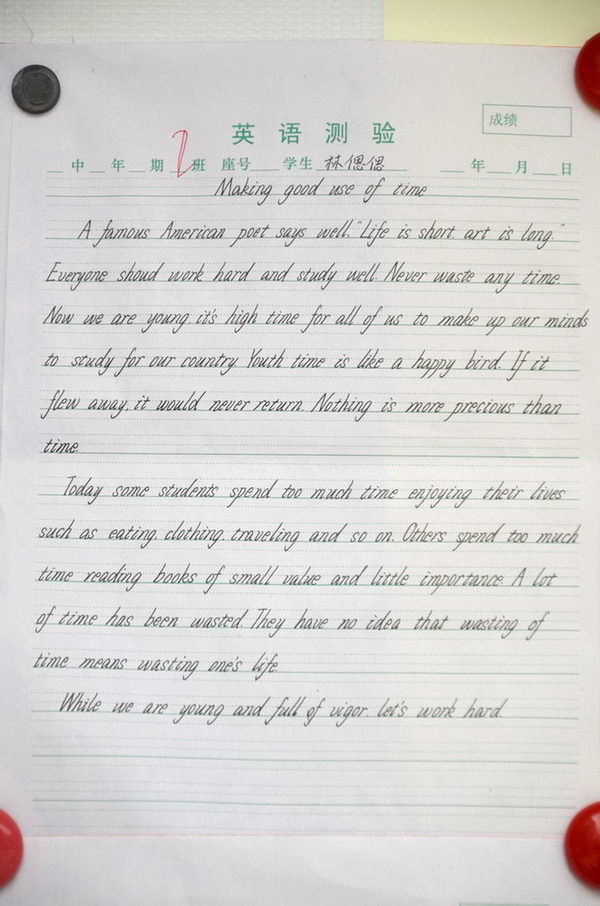 英语测验
成绩
中 年 期 2 班 座号 学生 林偲偲 年 月 日
Making good use of time
A famous American poet says well,"Life is short, art is long."
Everyone shoud work hard and study well. Never waste any time.
Now we are young, it's high time for all of us to make up our minds
to study for our country. Youth time is like a happy bird. If it
flew away, it would never return. Nothing is more precious than
time.
Today some students spend too much time enjoying their lives
such as eating, clothing, traveling and so on. Others spend too much
time reading books of small value and little importance. A lot
of time has been wasted. They have no idea that wasting of
time means wasting one's life.
While we are young and full of vigor, let's work hard.